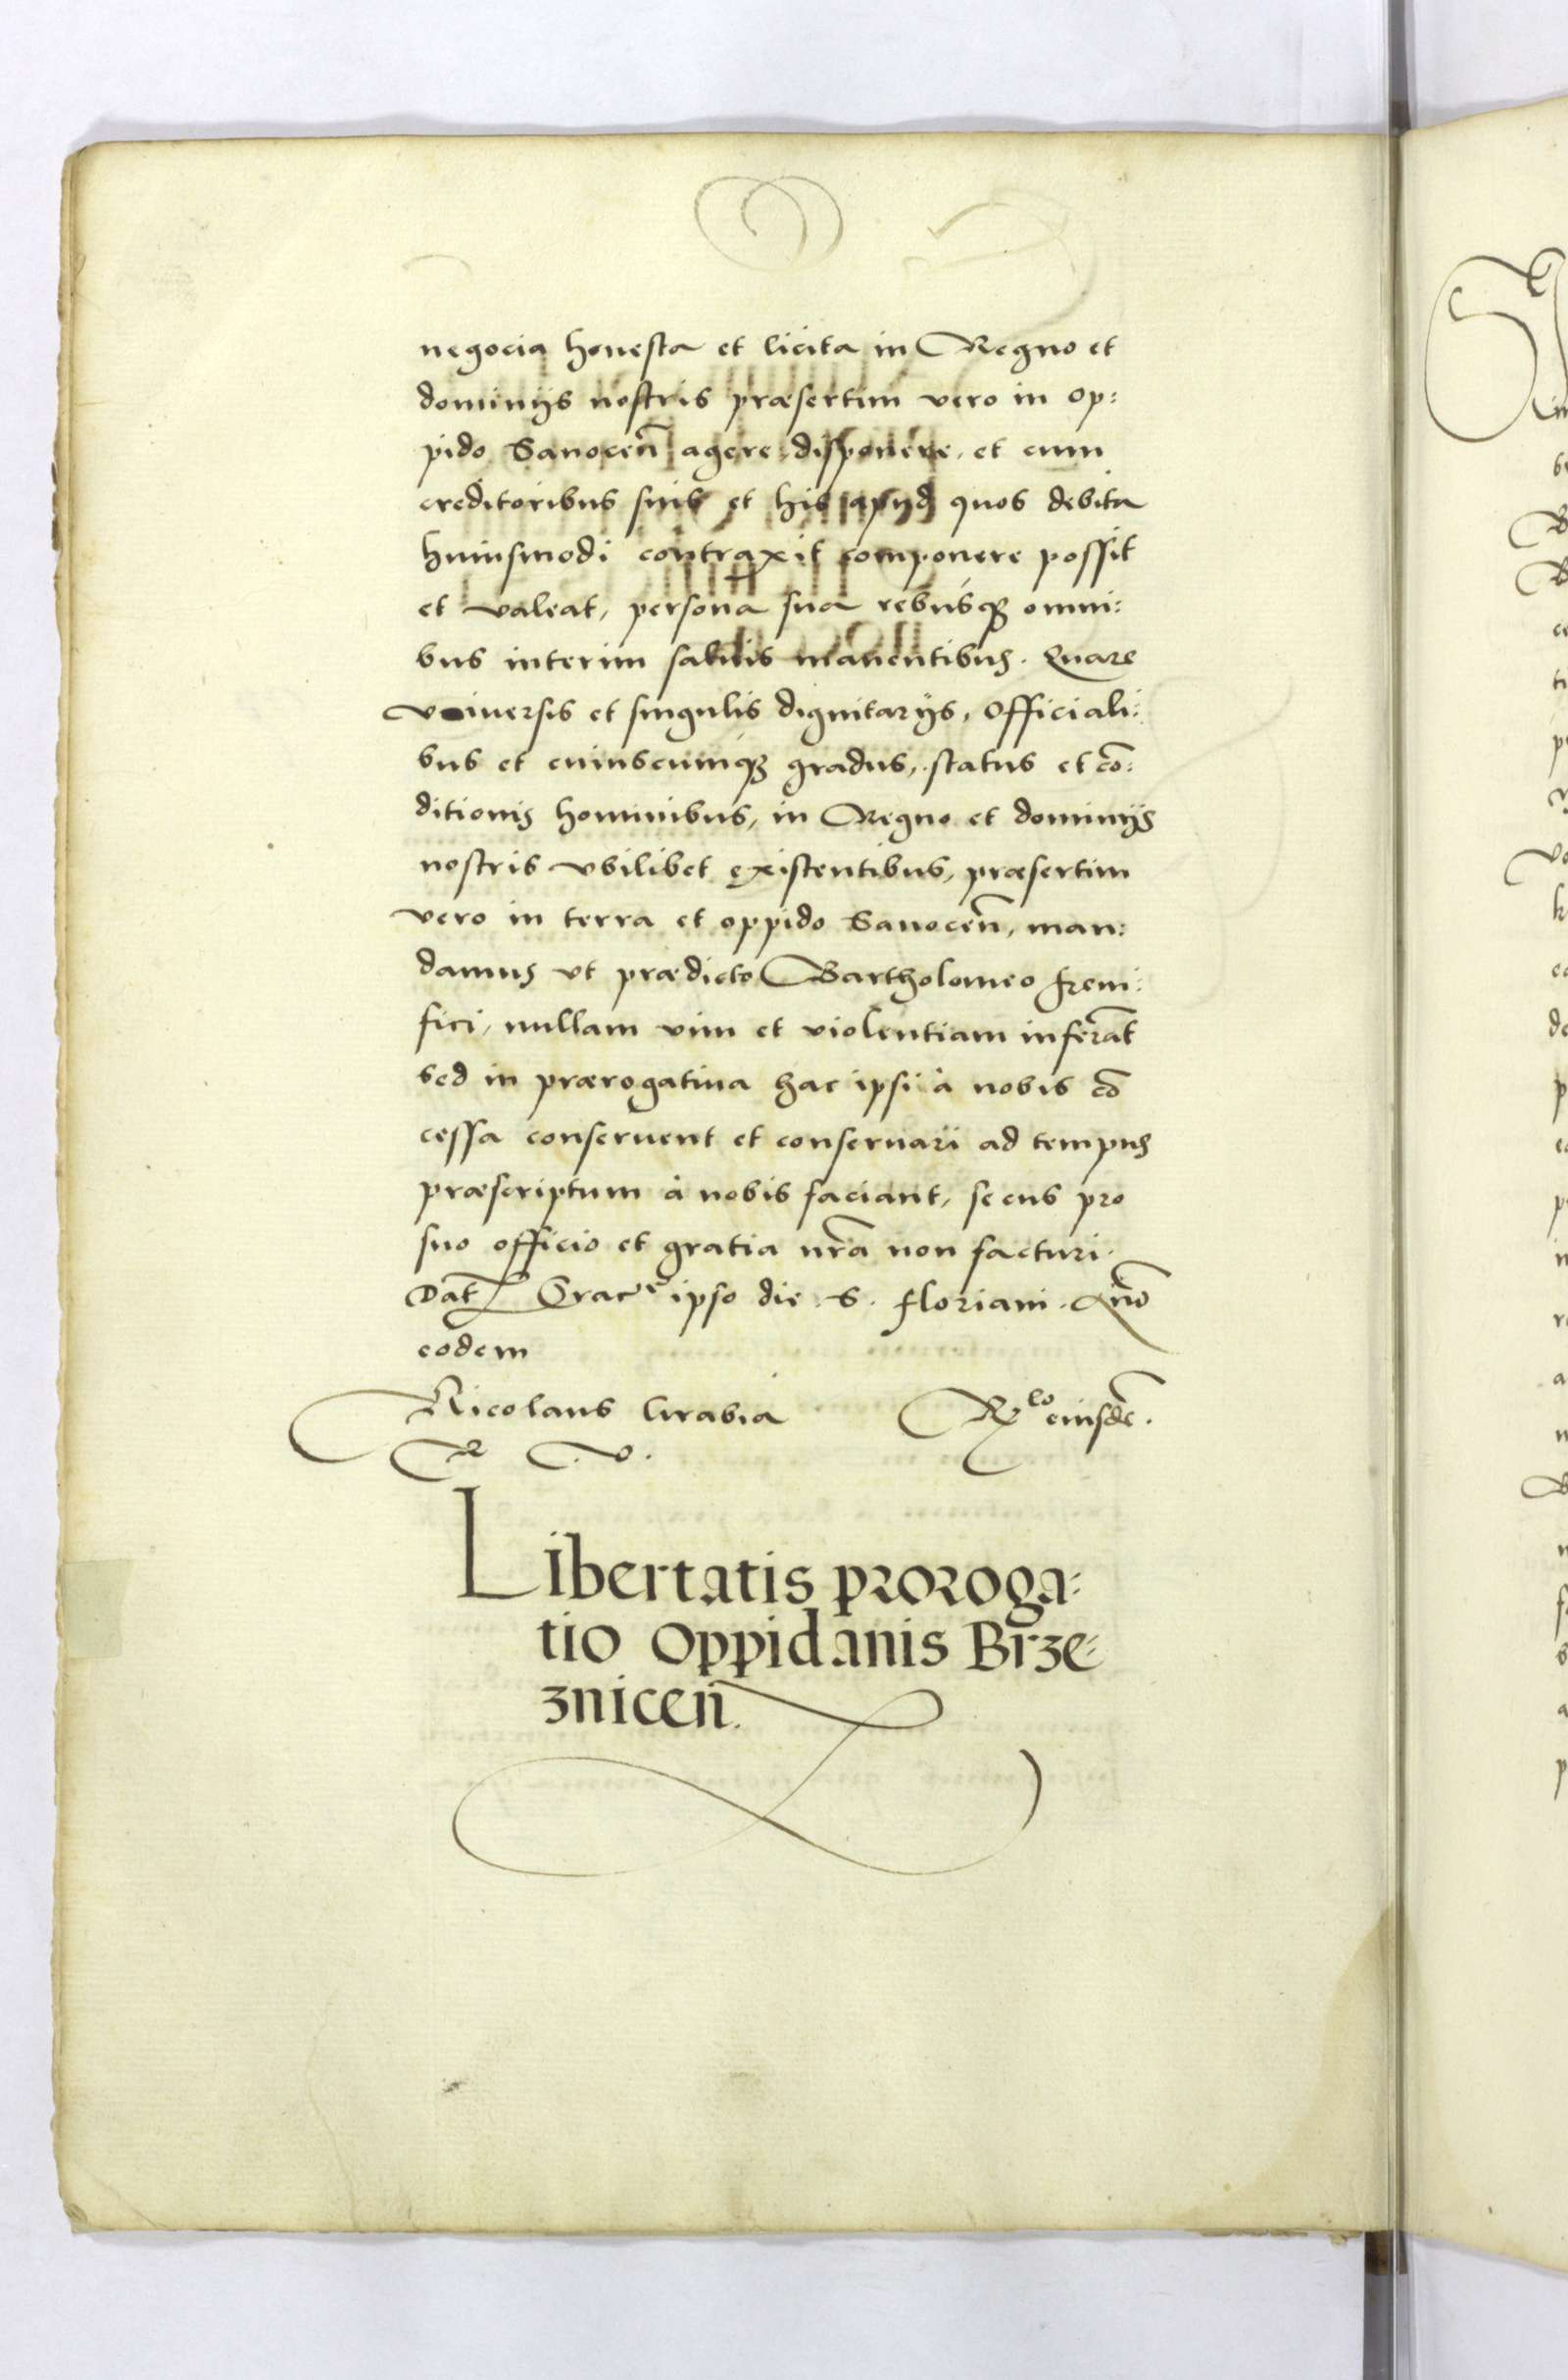 negocia honesta et licita in Regno et
dominijs nostris præsertim vero in op:
pido Sanoceñ agere disponere, et cum
creditoribus suis et his apud quos debita
huiusmodi contraxit componere possit
et valeat, persona sua rebusqꝫ omni:
bus interim saluis manentibus. Quare
vniuersis et singulis dignitarijs, Officiali:
bus et cuiuscunqꝫ gradus, status et cō:
ditionis hominibus, in Regno et dominijs
nostris vbilibet existentibus, præsertim
vero in terra et oppido Sanoceñ, man:
damus vt prædicto Bartholomeo freni:
fici, nullam vim et violentiam inferāt
sed in prærogatiua hac ipsi à nobis cō
cessa conseruent et conseruari ad tempus
præscriptum à nobis faciant, secus pro
suo officio et gratia nr̃a non facturi.
Dat̃ Cracᵉ ipso die S. floriani. Año
eodem
Nicolaus Grabia Rˡᵒ eiusdē.
R V.
Libertatis proroga:
tio Oppidanis Brze:
zniceñ.